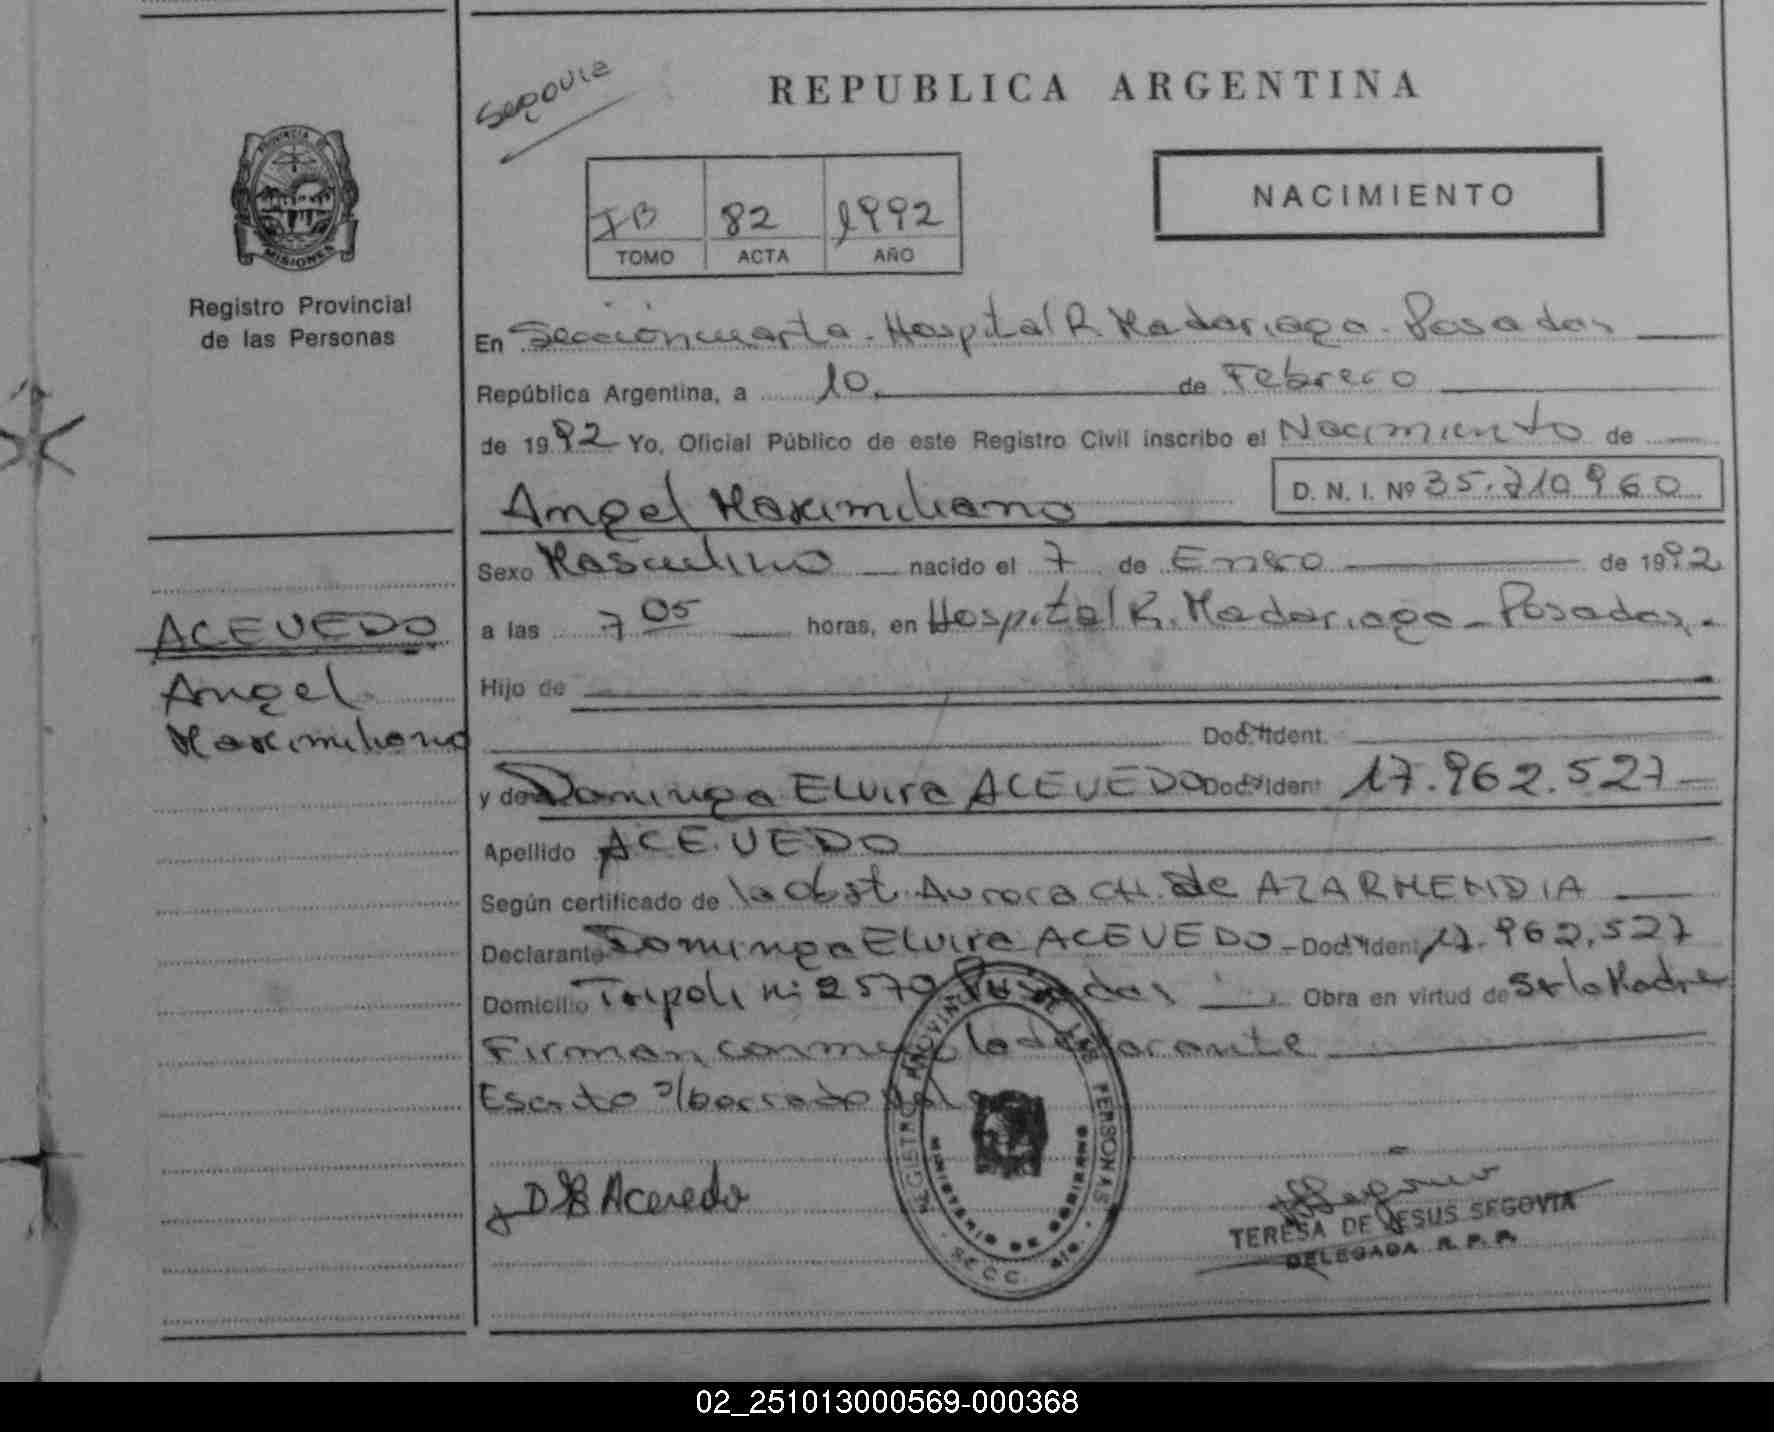 Segovia
REPUBLICA ARGENTINA
PROVINCIA DE
MISIONES
Registro Provincial
de las Personas
NACIMIENTO
IB 82 1992
TOMO ACTA AÑO
En Sección cuarta. Hospital R. Madariaga. Posadas
República Argentina, a 10 de Febrero
de 1992 Yo, Oficial Público de este Registro Civil inscribo el Nacimiento de
Angel Maximiliano D. N. I. Nº 35.710960
Sexo Masculino nacido el 7 de Enero de 1992
a las 7 05 horas, en Hospital R. Madariaga - Posadas.
ACEVEDO
Angel
Maximiliano
Hijo de
Doc. Ident.
y de Dominga Elvira ACEVEDO Doc. Ident 17.962.527
Apellido ACEVEDO
Según certificado de la Obst. Aurora CH. de AZARMENDIA
Declarante Dominga Elvira ACEVEDO - Doc. Ident. 17.962.527
Domicilio Tripoli nº 2570 Posadas Obra en virtud de Ser la Madre
Firman conmigo la declarante
Escrito s/borrado
REGISTRO PROVINCIAL DE LAS PERSONAS
MINISTERIO DE GOBIERNO
SECC. 4ta.
D E Acevedo
TERESA DE JESUS SEGOVIA
DELEGADA R. P. P.
02_251013000569-000368